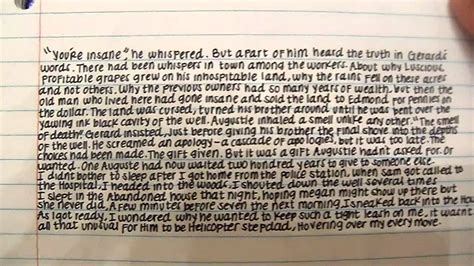 "You're insane," he whispered. But a part of him heard the truth in Gerard's
words. There had been whispers in town among the workers. About why Luscious
Profitable grapes grew on his inhospitable land, why the rains fell on these acres
and not others. Why the previous owners had so many years of wealth, but then the
old man who lived here had gone insane and sold the land to Edmond for pennies on
the dollar. The land was cursed, turned his brother around until he was bent over the
yawning ink black cavity of the well. Augustine inhaled a smell unlike any other. "The smell
of death." Gerard insisted, just before giving his brother the final shove into the depths
of the well. He screamed an apology - a cascade of apologies, but it was too late. The
choices had been made. The gift given. But it was a gift Augustie hadn't asked for. Or
wanted. One Augustie had now waited two hundred years to give to someone else.
I didnt bother to sleep after I got home from the police station. When Sam got called to
the Hospital, I headed into the woods. I shouted down the well several times
I slept in the Abandoned house that night, hoping megan might show up there but
she never did. A few minutes before seven the next morning, I sneaked back into the House
As I got ready, I wondered why he wanted to keep such a tight leash on me, it wasnt
all that unusual For Him to be Helicopter stepdad, Hovering over my every move.